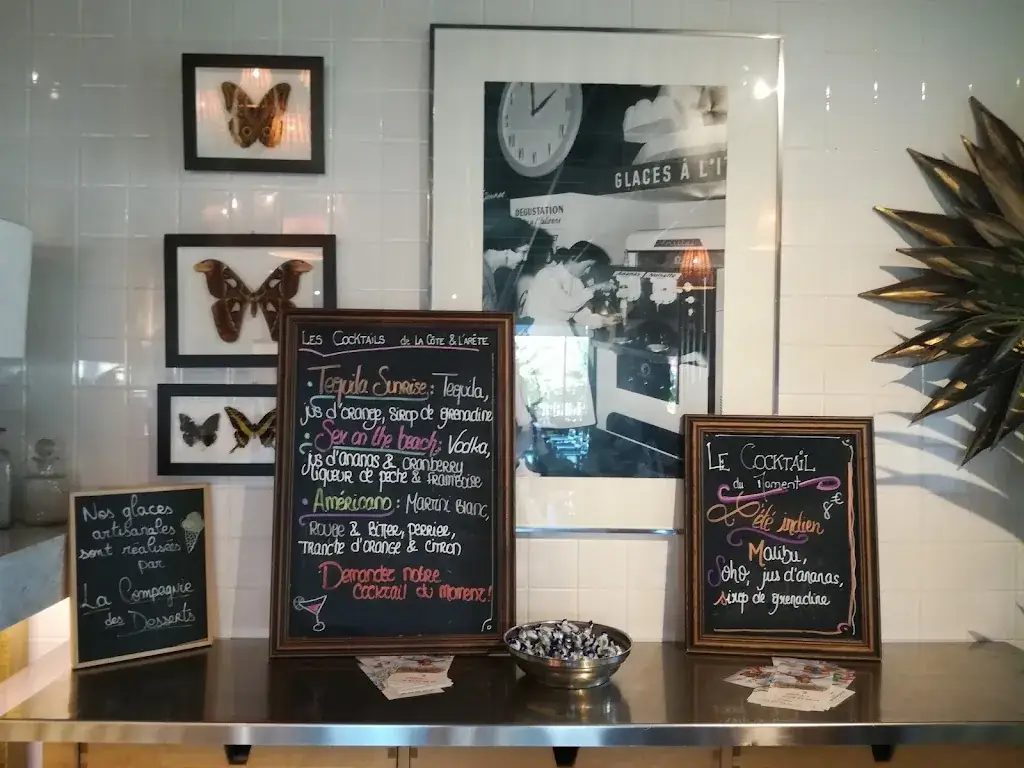 GLACES À L'I
DEGUSTATION
Les Cocktails de La Côte & L'Arête
• Tequila Sunrise : Tequila,
jus d'orange, sirop de grenadine
• Sex on the beach : Vodka,
jus d'ananas & cranberry
liqueur de pêche & framboise
• Américano : Martini Blanc,
Rouge & Bitter, Perrier,
tranche d'orange & citron
Demandez notre
cocktail du moment !
Nos glaces
artisanales
sont réalisées
par
La Compagnie
des Desserts
Le Cocktail
du Moment
8€
L'été indien
Malibu,
Soho, jus d'ananas,
sirop de grenadine